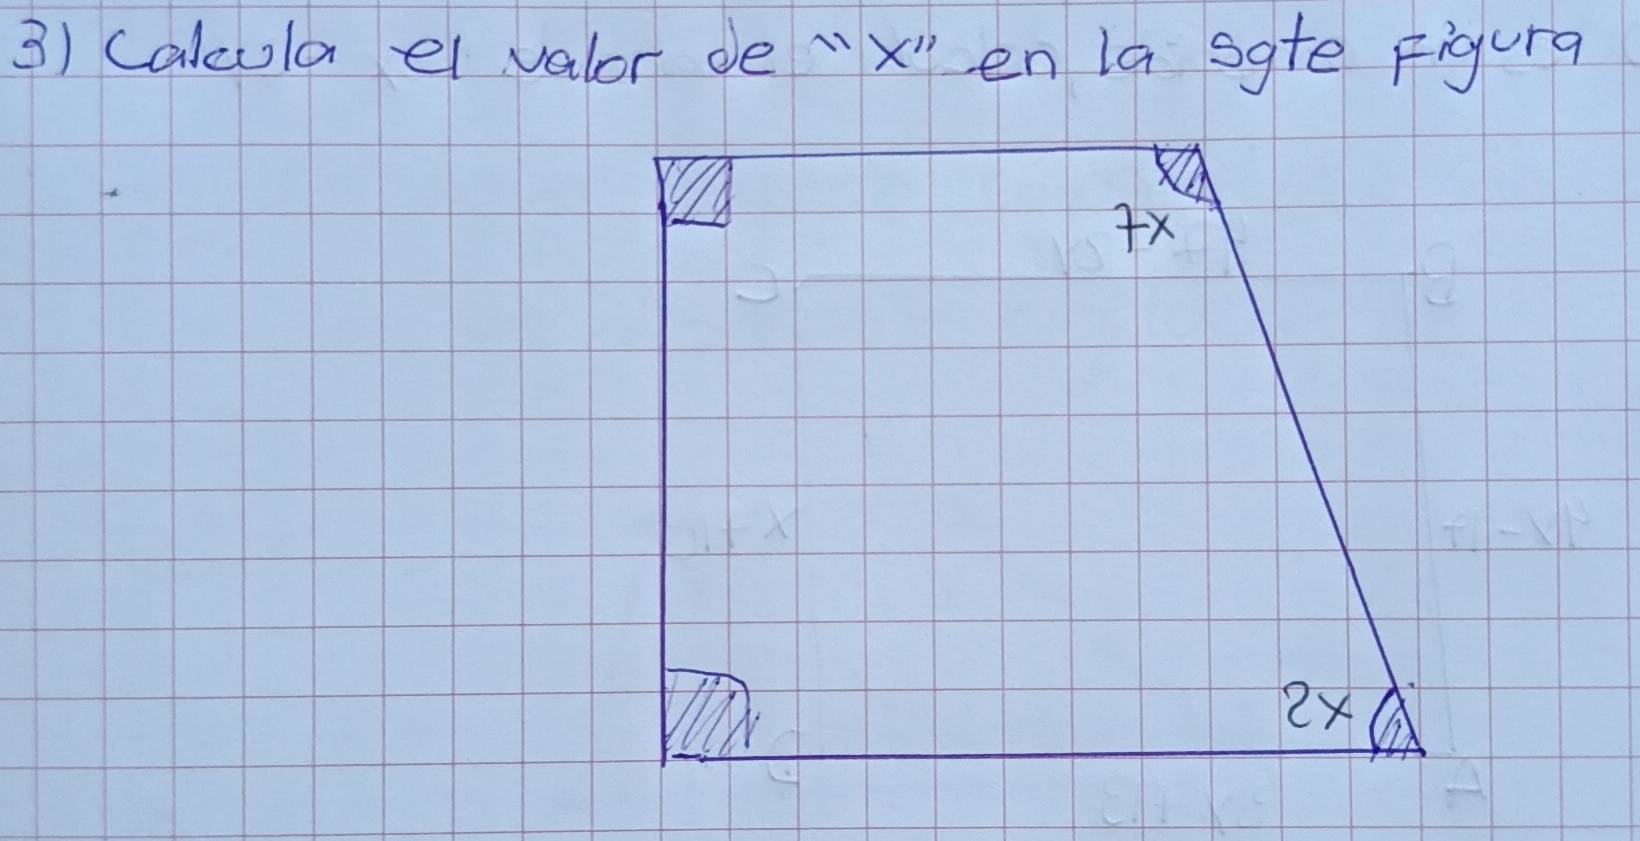 3) Calcula el valor de "x" en la sgte Figura
7x
2x